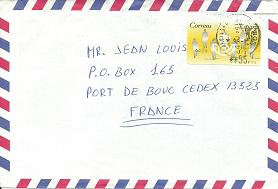 Correos
MR. JEAN LOUIS
P.O. BOX 165
PORT DE BOUC CEDEX 13525
FRANCE